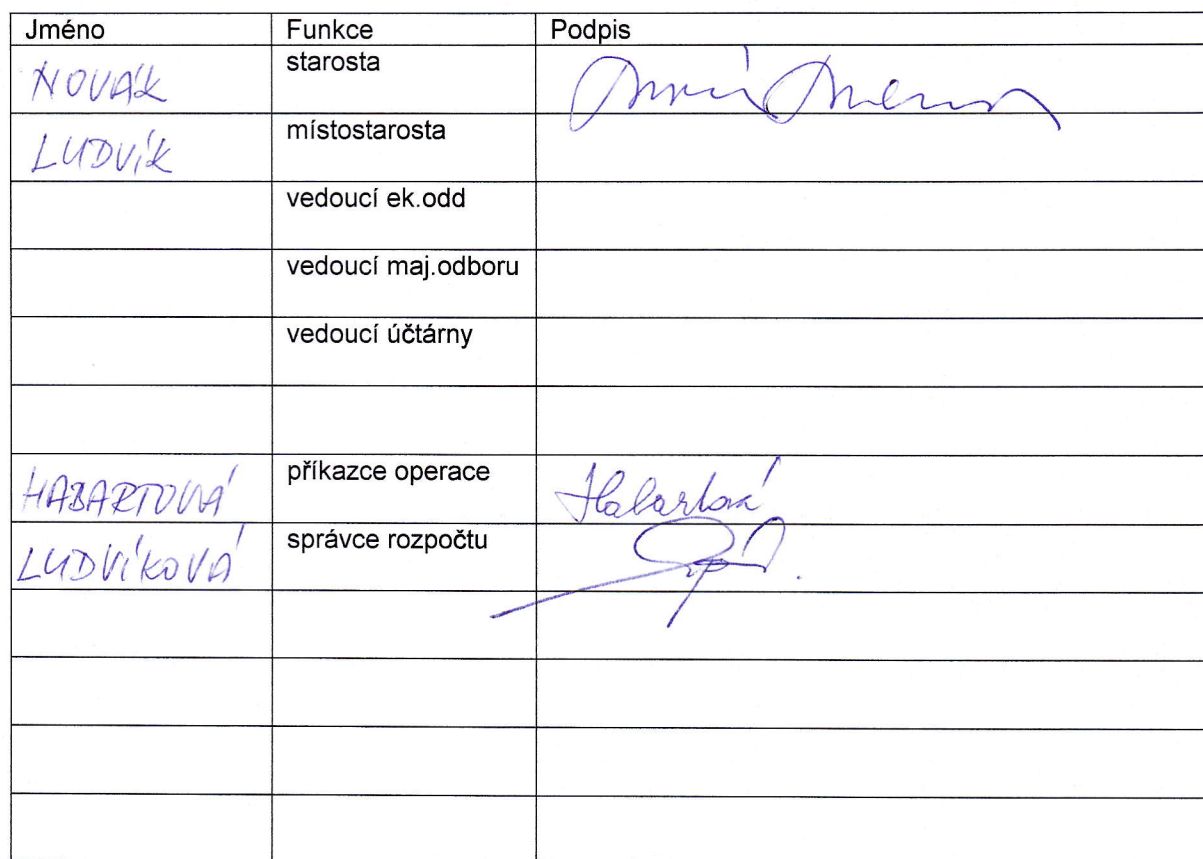 Jméno Funkce Podpis
NOVÁK starosta
LUDVÍK místostarosta
vedoucí ek.odd
vedoucí maj.odboru
vedoucí účtárny
HABARTOVÁ příkazce operace Habartová
LUDVÍKOVÁ správce rozpočtu